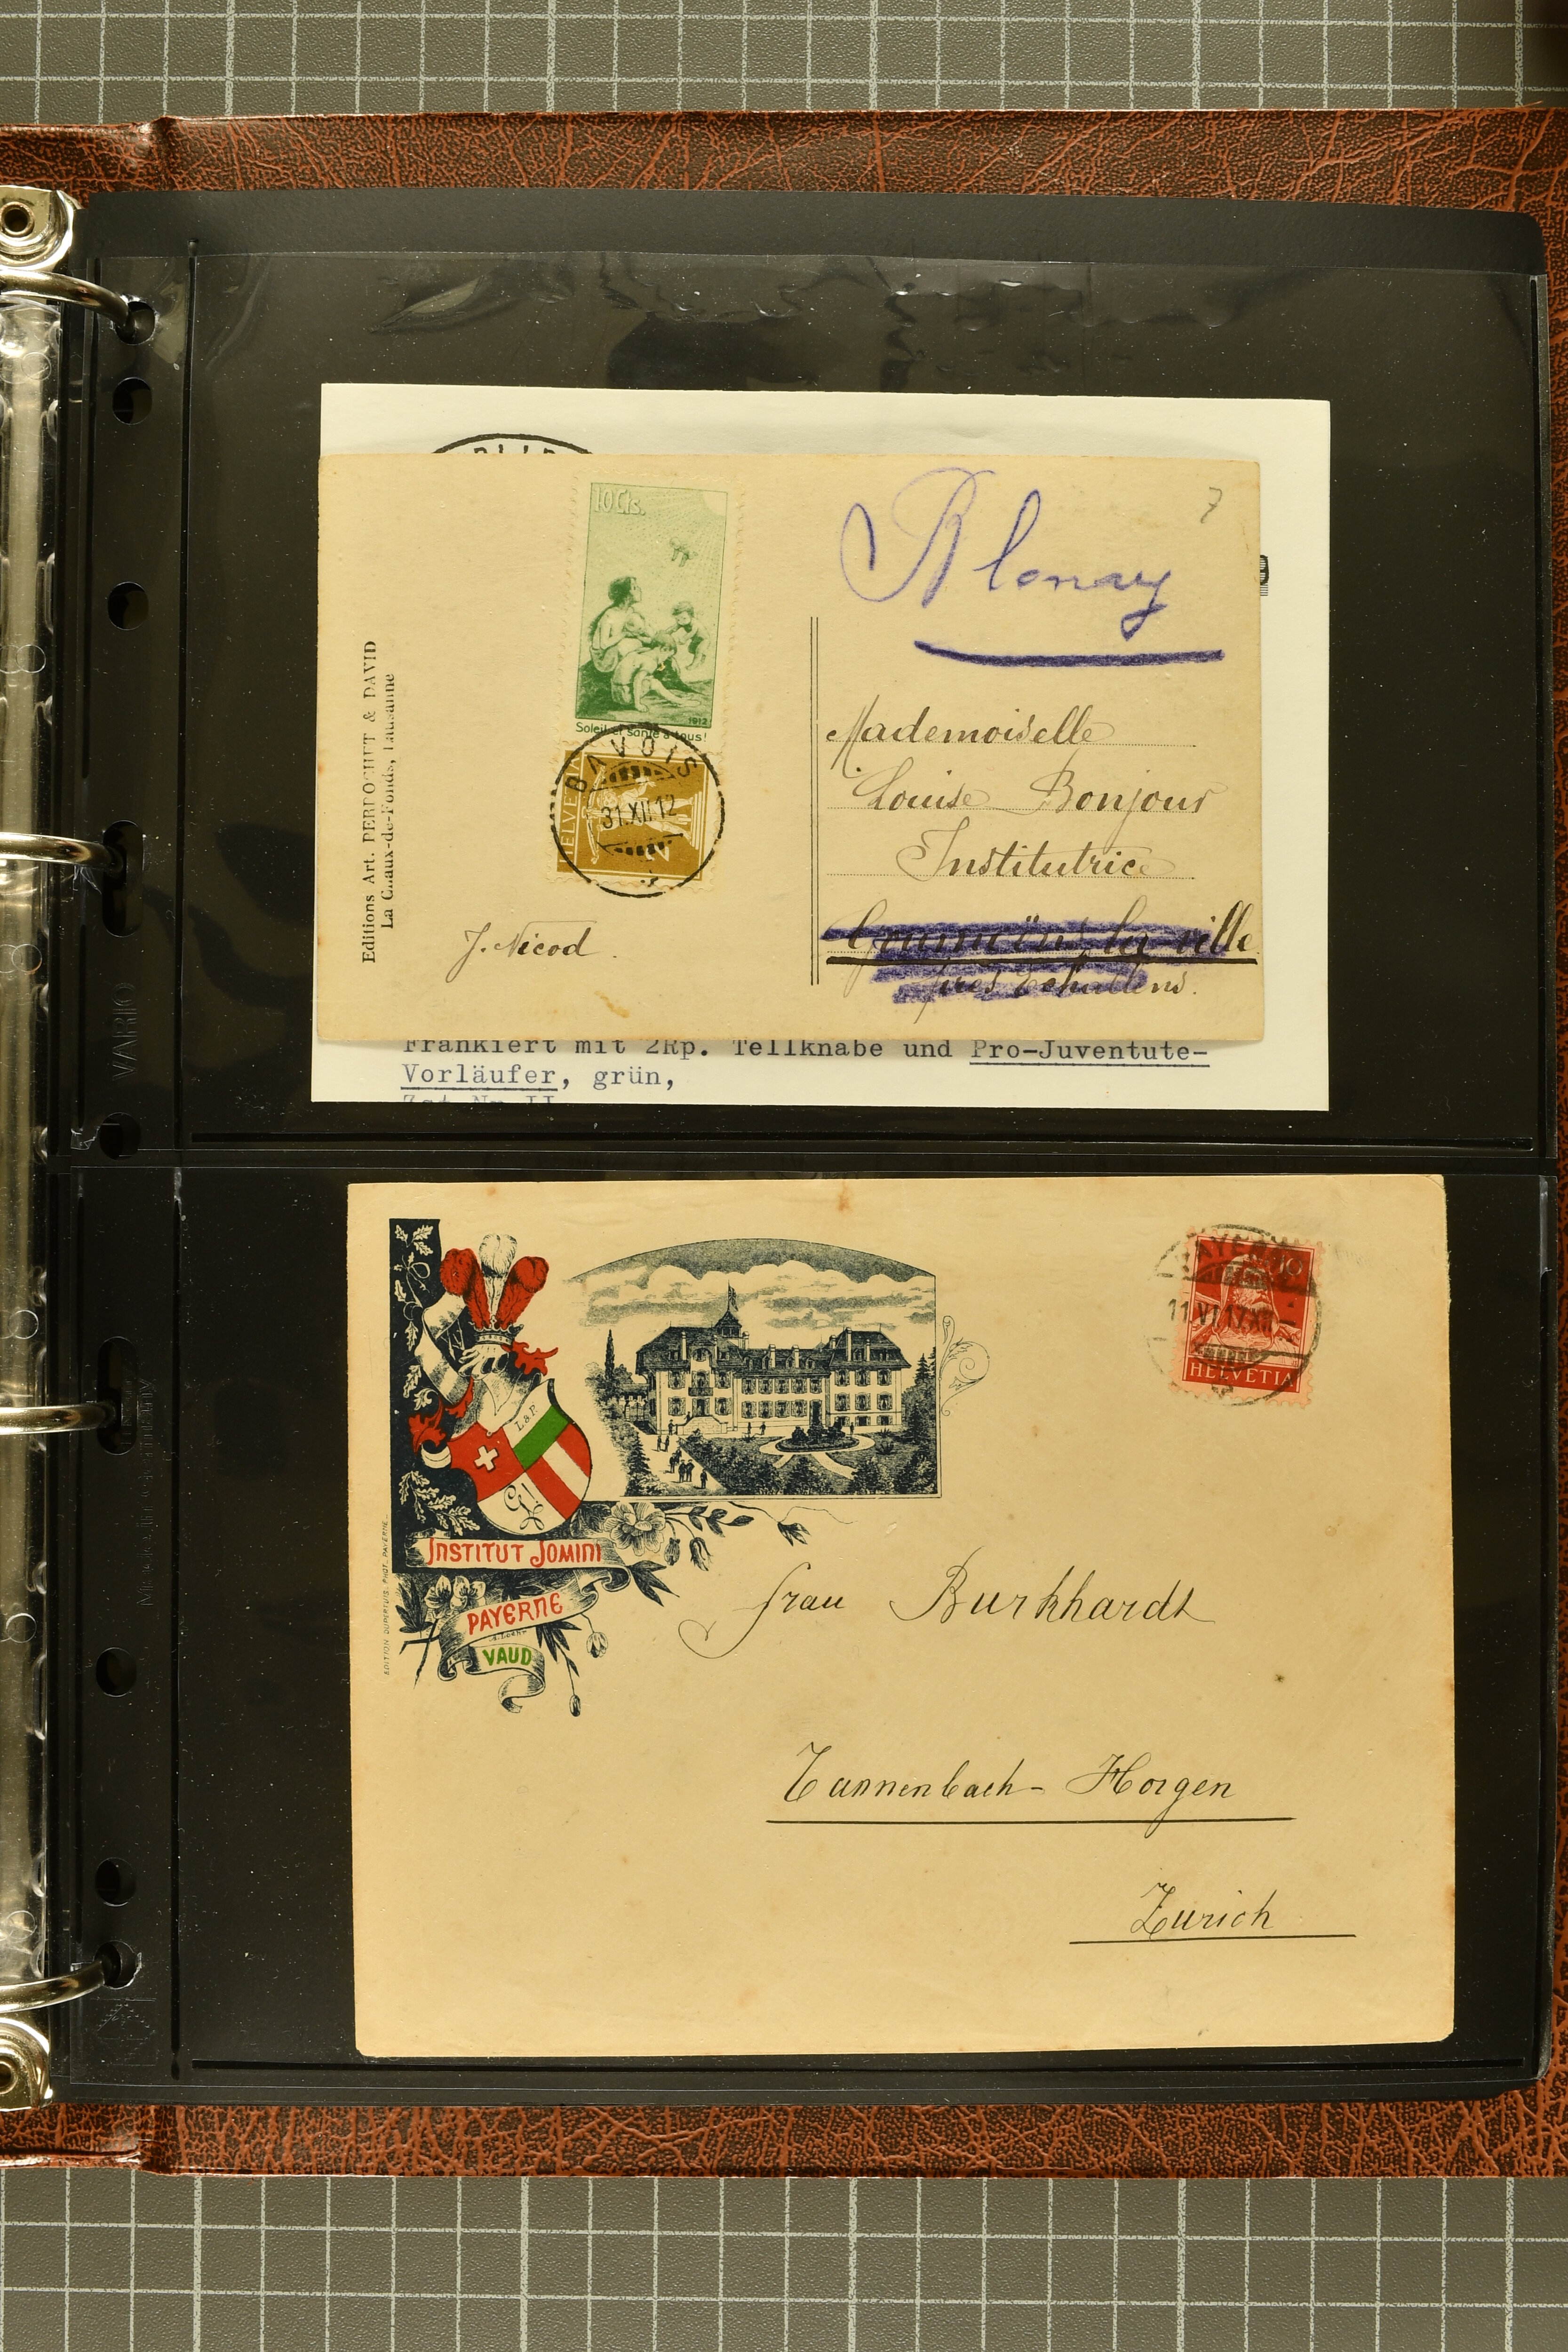 10 Cts.
1912
Soleil et santé à tous!
BAVOIS
31.XII.12
HELVE
Editions Art. PERROCHET & DAVID
La Chaux-de-Fonds, Lausanne
J. Nicod.
Blonay
7
Mademoiselle
Louise Bonjour
Institutrice
la ville
près Echallens.
Frankiert mit 2Rp. Tellknabe und Pro-Juventute-
Vorläufer, grün,
VARIO
INSTITUT JOMINI
PAYERNE
VAUD
EDITION DUPERTUIS. PHOT. PAYERNE.
PAYERNE
11.VI.17.XII
10
HELVETIA
Frau Burkhardt
Tannenbach-Horgen
Zurich